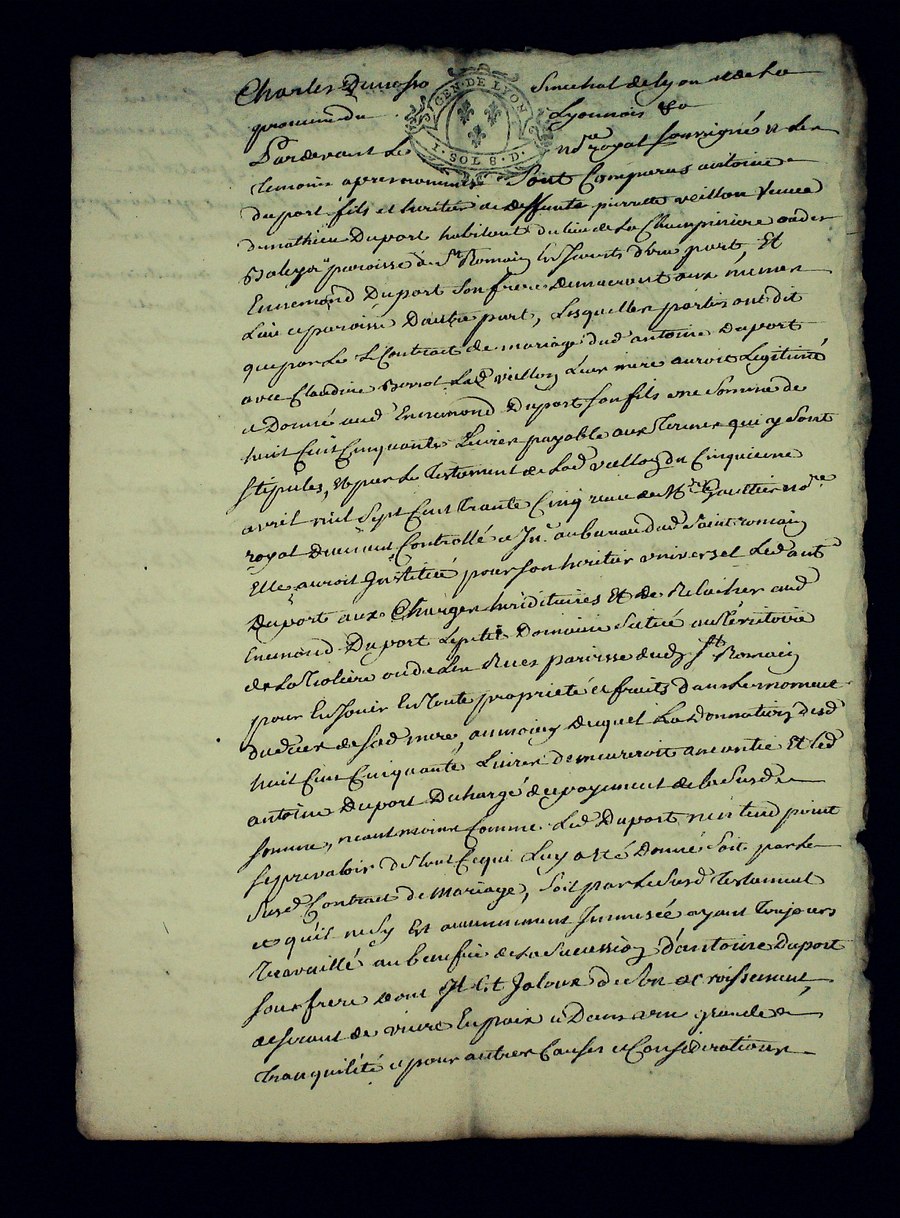 Charles Senechal de lyon et de La
province du Lyonnois &a
GEN. DE LYON
1. SOL 8. D.
Pardevant Le nore royal soussigné et Les
temoins apres nommés Sont Comparus antoine
duport fils et heritier de deffunte pierrette veillon veuve
de mathieu Duport habitant du lieu de La
paroisse de St Romain d'une part, Et
Ennemond Duport Son frere demeurant aux mêmes
Lieu et paroisse Dautre part, Lesquelles parties ont dit
que par Le Contrat de mariage dud antoine Duport
avec Claudine Lad veillon Leur mere auroit Legitimé
et Donné aud Ennemond Duport son fils une Somme de
huit Cent Cinquante Livres payable aux termes qui y Sont
Stipulés, et par Le testament de Lad veillon du Cinquieme
avril mil Sept Cent trante Cinq reçu de Me Gaultier nore
royal Duement Controllé et In. au bureau dud Saint romain
Elle auroit Institué pour Son heritier universel Led ant
Duport aux Charges hereditaires Et de Relacher aud
Ennemond Duport Le petit Domaine Situé au Territoire
de La ou de Les Rues paroisse dud St Romain
pour En Jouir En toute proprieté et fruits dans Le moment
du deces de Sad mere, au moien Duquel La Donnation desd
huit Cent Cinquante Livres demeureroit aneantie Et Led
antoine Duport Dechargé du payement de la Susd
Somme, neantmoins Comme Led Duport n'entend point
Se prevaloir de tout Ce qui Luy a eté Donné Soit par Le
Susd Contrat de Mariage, Soit par Le Susd testament
et qu'il ne S'y Est aucunement Immiscé ayant Toujours
travaillé au benefice de La Succession d'antoine Duport
Son frere dont Il Est Jaloux de Son accroissement,
desirant de vivre En paix et Dans une grande
tranquilité et pour autres Causes et Considerations